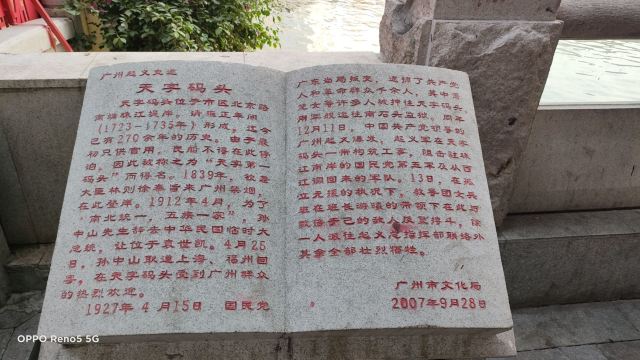 广州起义史迹
天字码头
天字码头位于市区北京路
南端珠江堤岸，清雍正年间
（1723—1735年）形成，迄今
已有270余年的历史。由于最
初只供官用，民船不得在此停
泊，因此被称之为“天字第一
码头”而得名。1839年，钦差
大臣林则徐奉旨来广州禁烟，
在此登岸。1912年4月，为了
“南北统一，五族一家”，孙
中山先生辞去中华民国临时大
总统，让位于袁世凯。4月25
日，孙中山取道上海、福州回
粤，在天字码头受到广州群众
的热烈欢迎。
1927年4月15日 国民党
广东当局叛变，逮捕了共产党
人和革命群众千余人，其中萧
楚女等许多人被押往天字码头，
用军舰运往南石头监狱。同年
12月11日，中国共产党领导的
广州起义爆发，起义军在天字
码头一带构筑工事，阻击驻珠
江南岸的国民党第五军及从西
江调回来的军队。13日，在孤
立无援的状况下，教导团女兵
班在班长游曦的带领下在此与
数倍于己的敌人反复搏斗，除
一人派往起义总指挥部联络外
其余全部壮烈牺牲。
广州市文化局
2007年9月28日
OPPO Reno5 5G